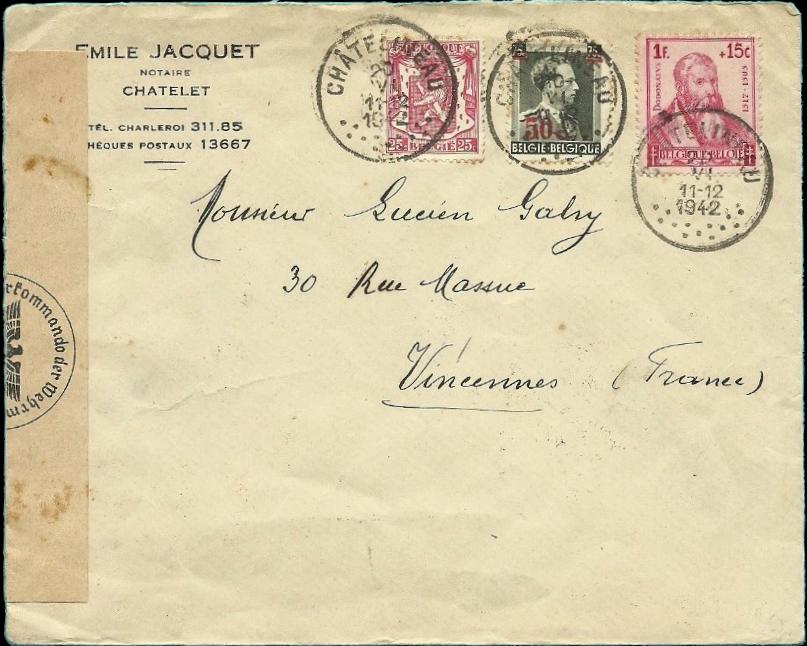 EMILE JACQUET
NOTAIRE
CHATELET
TÉL. CHARLEROI 311.85
HÈQUES POSTAUX 13667
CHÂTELINEAU
20
VI
11-12
1942
BELGIQUE
25c
BELGIË
25c
25
25
50c
BELGIE-BELGIQUE
1F.
+15c
DODONAEUS
1517-1585
BELGIQUE-BELGIË
VI
11-12
1942
Monsieur Lucien Galry
30 Rue Massue
Vincennes (France)
rkommando der Wehrm